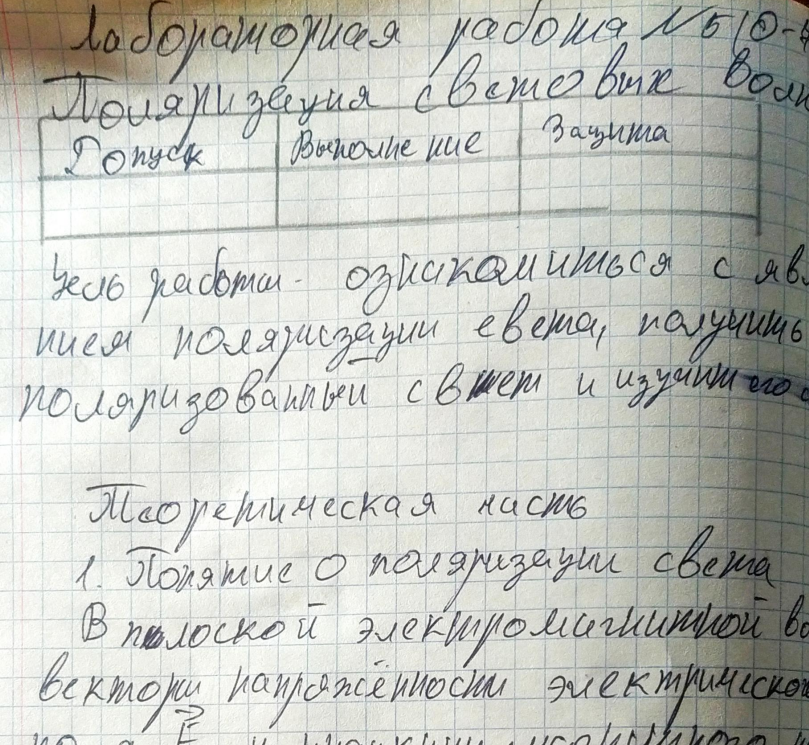 Лабораторная работа №510-
Поляризация световых волн
Допуск Выполнение Защита
Цель работы - ознакомиться с явл
нием поляризации света, получить
поляризованный свет и изучит его с
Теоретическая часть
1. Понятие о поляризации света
В плоской электромагнитной во
векторы напряжённости электрическо
E и